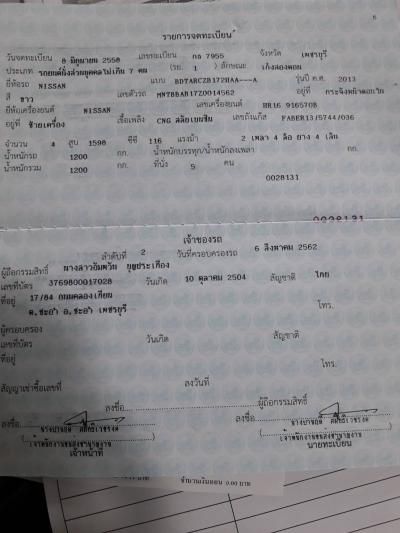 6
รายการจดทะเบียน
วันจดทะเบียน 8 มิถุนายน 2558 เลขทะเบียน กร 7955 จังหวัด เพชรบุรี
ประเภท รถยนต์นั่งส่วนบุคคลไม่เกิน 7 คน (รย. 1 ) ลักษณะ เก๋งสองตอน
ยี่ห้อรถ NISSAN แบบ BDTARCZB172HAA---A รุ่นปี ค.ศ. 2013
สี ขาว เลขตัวรถ MNTBBAB17Z0014562 อยู่ที่
ยี่ห้อเครื่องยนต์ NISSAN เลขเครื่องยนต์ HR16 916570B
อยู่ที่ ซ้ายเครื่อง เชื้อเพลิง CNG สลับเบนซิน เลขถังแก๊ส FABER13/5744/036
จำนวน 4 สูบ 1598 ซีซี 116 แรงม้า 2 เพลา 4 ล้อ ยาง 4 เส้น
น้ำหนักรถ 1200 กก. น้ำหนักบรรทุก/น้ำหนักลงเพลา กก.
น้ำหนักรวม 1200 กก. ที่นั่ง 5 คน
0028131
0028131
เจ้าของรถ
ลำดับที่ 2 วันที่ครอบครองรถ 6 สิงหาคม 2562
ผู้ถือกรรมสิทธิ์ นางสาวอัมพวัน
เลขที่บัตร 3769800017028 วันเกิด 10 ตุลาคม 2504 สัญชาติ ไทย
ที่อยู่ 17/84 ถนนคลองเทียน
ต.ชะอำ อ.ชะอำ เพชรบุรี โทร.
ผู้ครอบครอง
เลขที่บัตร วันเกิด สัญชาติ
ที่อยู่
โทร.
สัญญาเช่าซื้อเลขที่ ลงวันที่
ลงชื่อ ผู้ถือกรรมสิทธิ์
ลงชื่อ ลงชื่อ
(เจ้าพนักงานขนส่งชำนาญงาน) (เจ้าพนักงานขนส่งชำนาญงาน)
เจ้าหน้าที่ นายทะเบียน
จำนวนเงินถอน 0.00 บาท